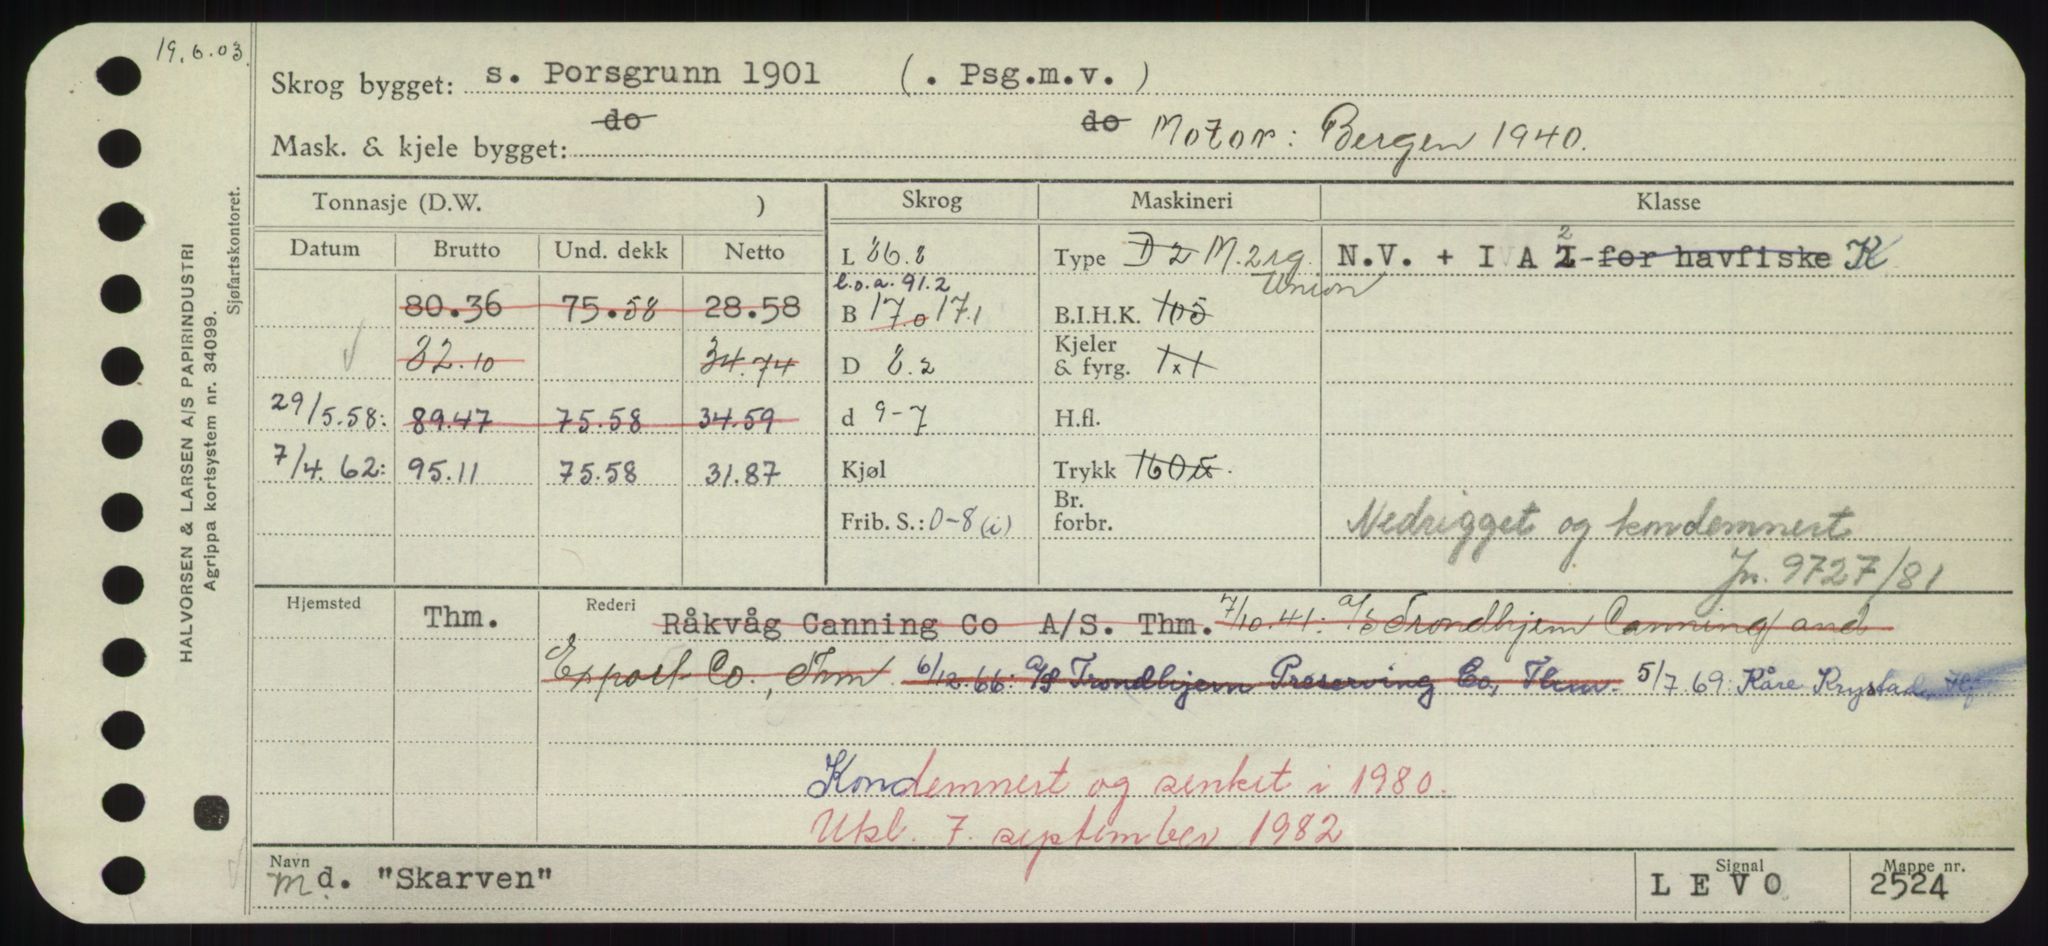 19.6.03.
Skrog bygget: s. Porsgrunn 1901 (. Psg.m.v. )
do do
Mask. & kjele bygget: Motor: Bergen 1940.
HALVORSEN & LARSEN A/S PAPIRINDUSTRI
Agrippa kortsystem nr. 34099.
Sjøfartskontoret.
Tonnasje (D.W. ) Skrog Maskineri Klasse
Datum Brutto Und. dekk Netto
L 86.8 Type D 2 M. 2 rg. Union N.V. + I A 2 I for havfiske K
l.o.a. 91.2
80.36 75.58 28.58 B 17.0 17.1 B.I.H.K. 105
82.10 34.74 D 8.2 Kjeler & fyrg. 1x1
29/5.58: 89.47 75.58 34.59 d 9-7 H.fl.
7/4.62: 95.11 75.58 31.87 Kjøl Trykk 160
Frib. S.: 0-8 (i) Br. forbr.
Nedrigget og kondemnert
Jn. 9727/81
Hjemsted Thm. Rederi Råkvåg Canning Co A/S. Thm. 7/10.41: A/S Trondhjem Canning and
Export Co., Thm 6/12.66: A/S Trondhjem Preserving Co, Thm. 5/7.69: Kåre Krystad,
Kondemnert og senket i 1980.
Ukl. 7. september 1982
Navn M d. "Skarven" Signal L E V O Mappe nr. 2524